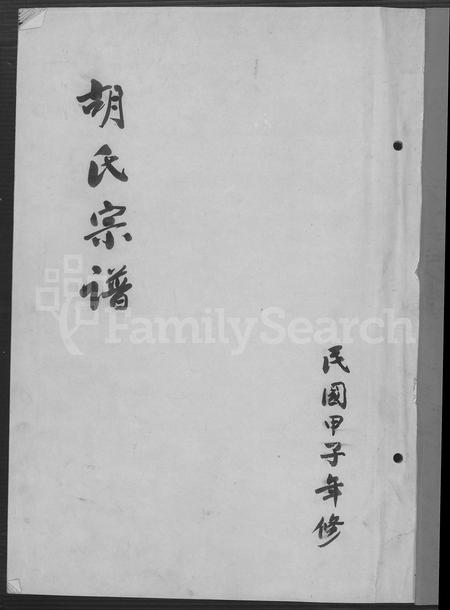 胡氏宗谱
民國甲子年修
FamilySearch